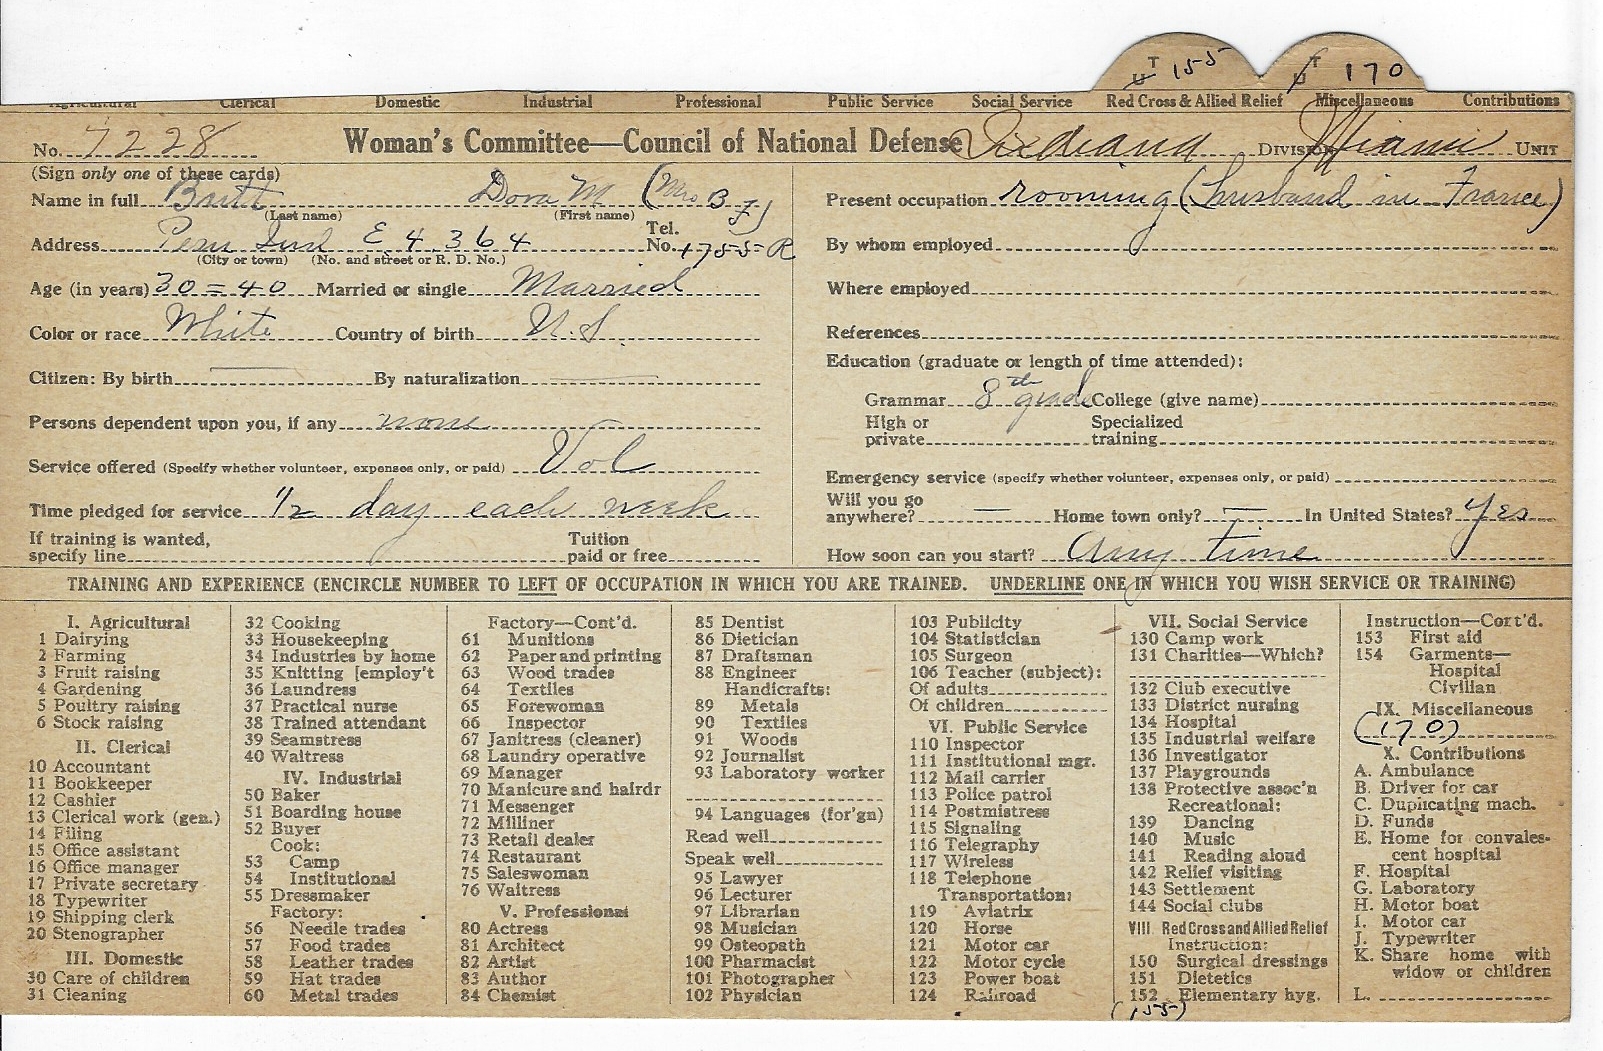 T
U 155
T
U 170
Agricultural Clerical Domestic Industrial Professional Public Service Social Service Red Cross & Allied Relief Miscellaneous Contributions
No. 7228 Woman's Committee—Council of National Defense Indiana DIVISION Miami UNIT
(Sign only one of these cards)
Name in full Britt Dora M (Mrs B F)
(Last name) (First name)
Address Peru Ind E 4 364 Tel. No. 1755-R
(City or town) (No. and street or R. D. No.)
Age (in years) 30=40 Married or single Married
Color or race White Country of birth U.S.
Citizen: By birth — By naturalization —
Persons dependent upon you, if any none
Service offered (Specify whether volunteer, expenses only, or paid) Vol
Time pledged for service 1/2 day each week
If training is wanted, Tuition
specify line paid or free
Present occupation rooming (husband in France)
By whom employed
Where employed
References
Education (graduate or length of time attended):
Grammar 8th grade College (give name)
High or Specialized
private training
Emergency service (specify whether volunteer, expenses only, or paid)
Will you go
anywhere? — Home town only? — In United States? Yes
How soon can you start? Any time
TRAINING AND EXPERIENCE (ENCIRCLE NUMBER TO LEFT OF OCCUPATION IN WHICH YOU ARE TRAINED. UNDERLINE ONE IN WHICH YOU WISH SERVICE OR TRAINING)
I. Agricultural
1 Dairying
2 Farming
3 Fruit raising
4 Gardening
5 Poultry raising
6 Stock raising
II. Clerical
10 Accountant
11 Bookkeeper
12 Cashier
13 Clerical work (gen.)
14 Filing
15 Office assistant
16 Office manager
17 Private secretary
18 Typewriter
19 Shipping clerk
20 Stenographer
III. Domestic
30 Care of children
31 Cleaning
32 Cooking
33 Housekeeping
34 Industries by home
35 Knitting [employ't
36 Laundress
37 Practical nurse
38 Trained attendant
39 Seamstress
40 Waitress
IV. Industrial
50 Baker
51 Boarding house
52 Buyer
Cook:
53 Camp
54 Institutional
55 Dressmaker
Factory:
56 Needle trades
57 Food trades
58 Leather trades
59 Hat trades
60 Metal trades
Factory—Cont'd.
61 Munitions
62 Paper and printing
63 Wood trades
64 Textiles
65 Forewoman
66 Inspector
67 Janitress (cleaner)
68 Laundry operative
69 Manager
70 Manicure and hairdr
71 Messenger
72 Milliner
73 Retail dealer
74 Restaurant
75 Saleswoman
76 Waitress
V. Professional
80 Actress
81 Architect
82 Artist
83 Author
84 Chemist
85 Dentist
86 Dietician
87 Draftsman
88 Engineer
Handicrafts:
89 Metals
90 Textiles
91 Woods
92 Journalist
93 Laboratory worker
94 Languages (for'gn)
Read well
Speak well
95 Lawyer
96 Lecturer
97 Librarian
98 Musician
99 Osteopath
100 Pharmacist
101 Photographer
102 Physician
103 Publicity
104 Statistician
105 Surgeon
106 Teacher (subject):
Of adults
Of children
VI. Public Service
110 Inspector
111 Institutional mgr.
112 Mail carrier
113 Police patrol
114 Postmistress
115 Signaling
116 Telegraphy
117 Wireless
118 Telephone
Transportation:
119 Aviatrix
120 Horse
121 Motor car
122 Motor cycle
123 Power boat
124 Railroad
VII. Social Service
130 Camp work
131 Charities—Which?
132 Club executive
133 District nursing
134 Hospital
135 Industrial welfare
136 Investigator
137 Playgrounds
138 Protective assoc'n
Recreational:
139 Dancing
140 Music
141 Reading aloud
142 Relief visiting
143 Settlement
144 Social clubs
VIII Red Cross and Allied Relief
Instruction:
150 Surgical dressings
151 Dietetics
152 Elementary hyg.
(155)
Instruction—Cort'd.
153 First aid
154 Garments—
Hospital
Civilian
IX. Miscellaneous
(170)
X. Contributions
A. Ambulance
B. Driver for car
C. Duplicating mach.
D. Funds
E. Home for convales-
cent hospital
F. Hospital
G. Laboratory
H. Motor boat
I. Motor car
J. Typewriter
K. Share home with
widow or children
L.